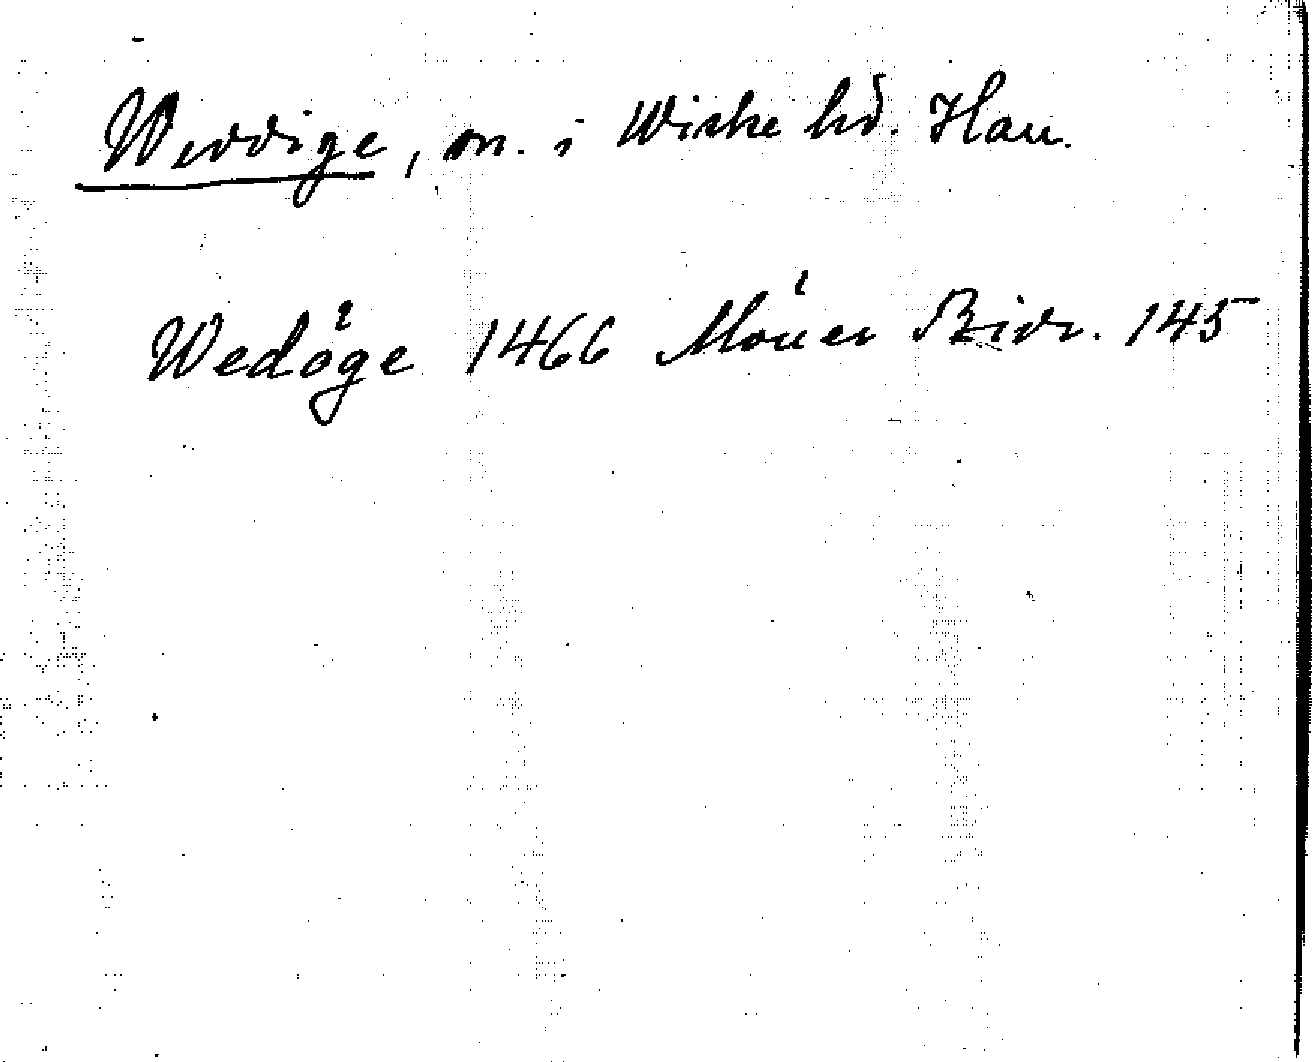 Weddige, sn. i Wiske hd. Hall.
Wedöge 1466 Móner Bidr. 145